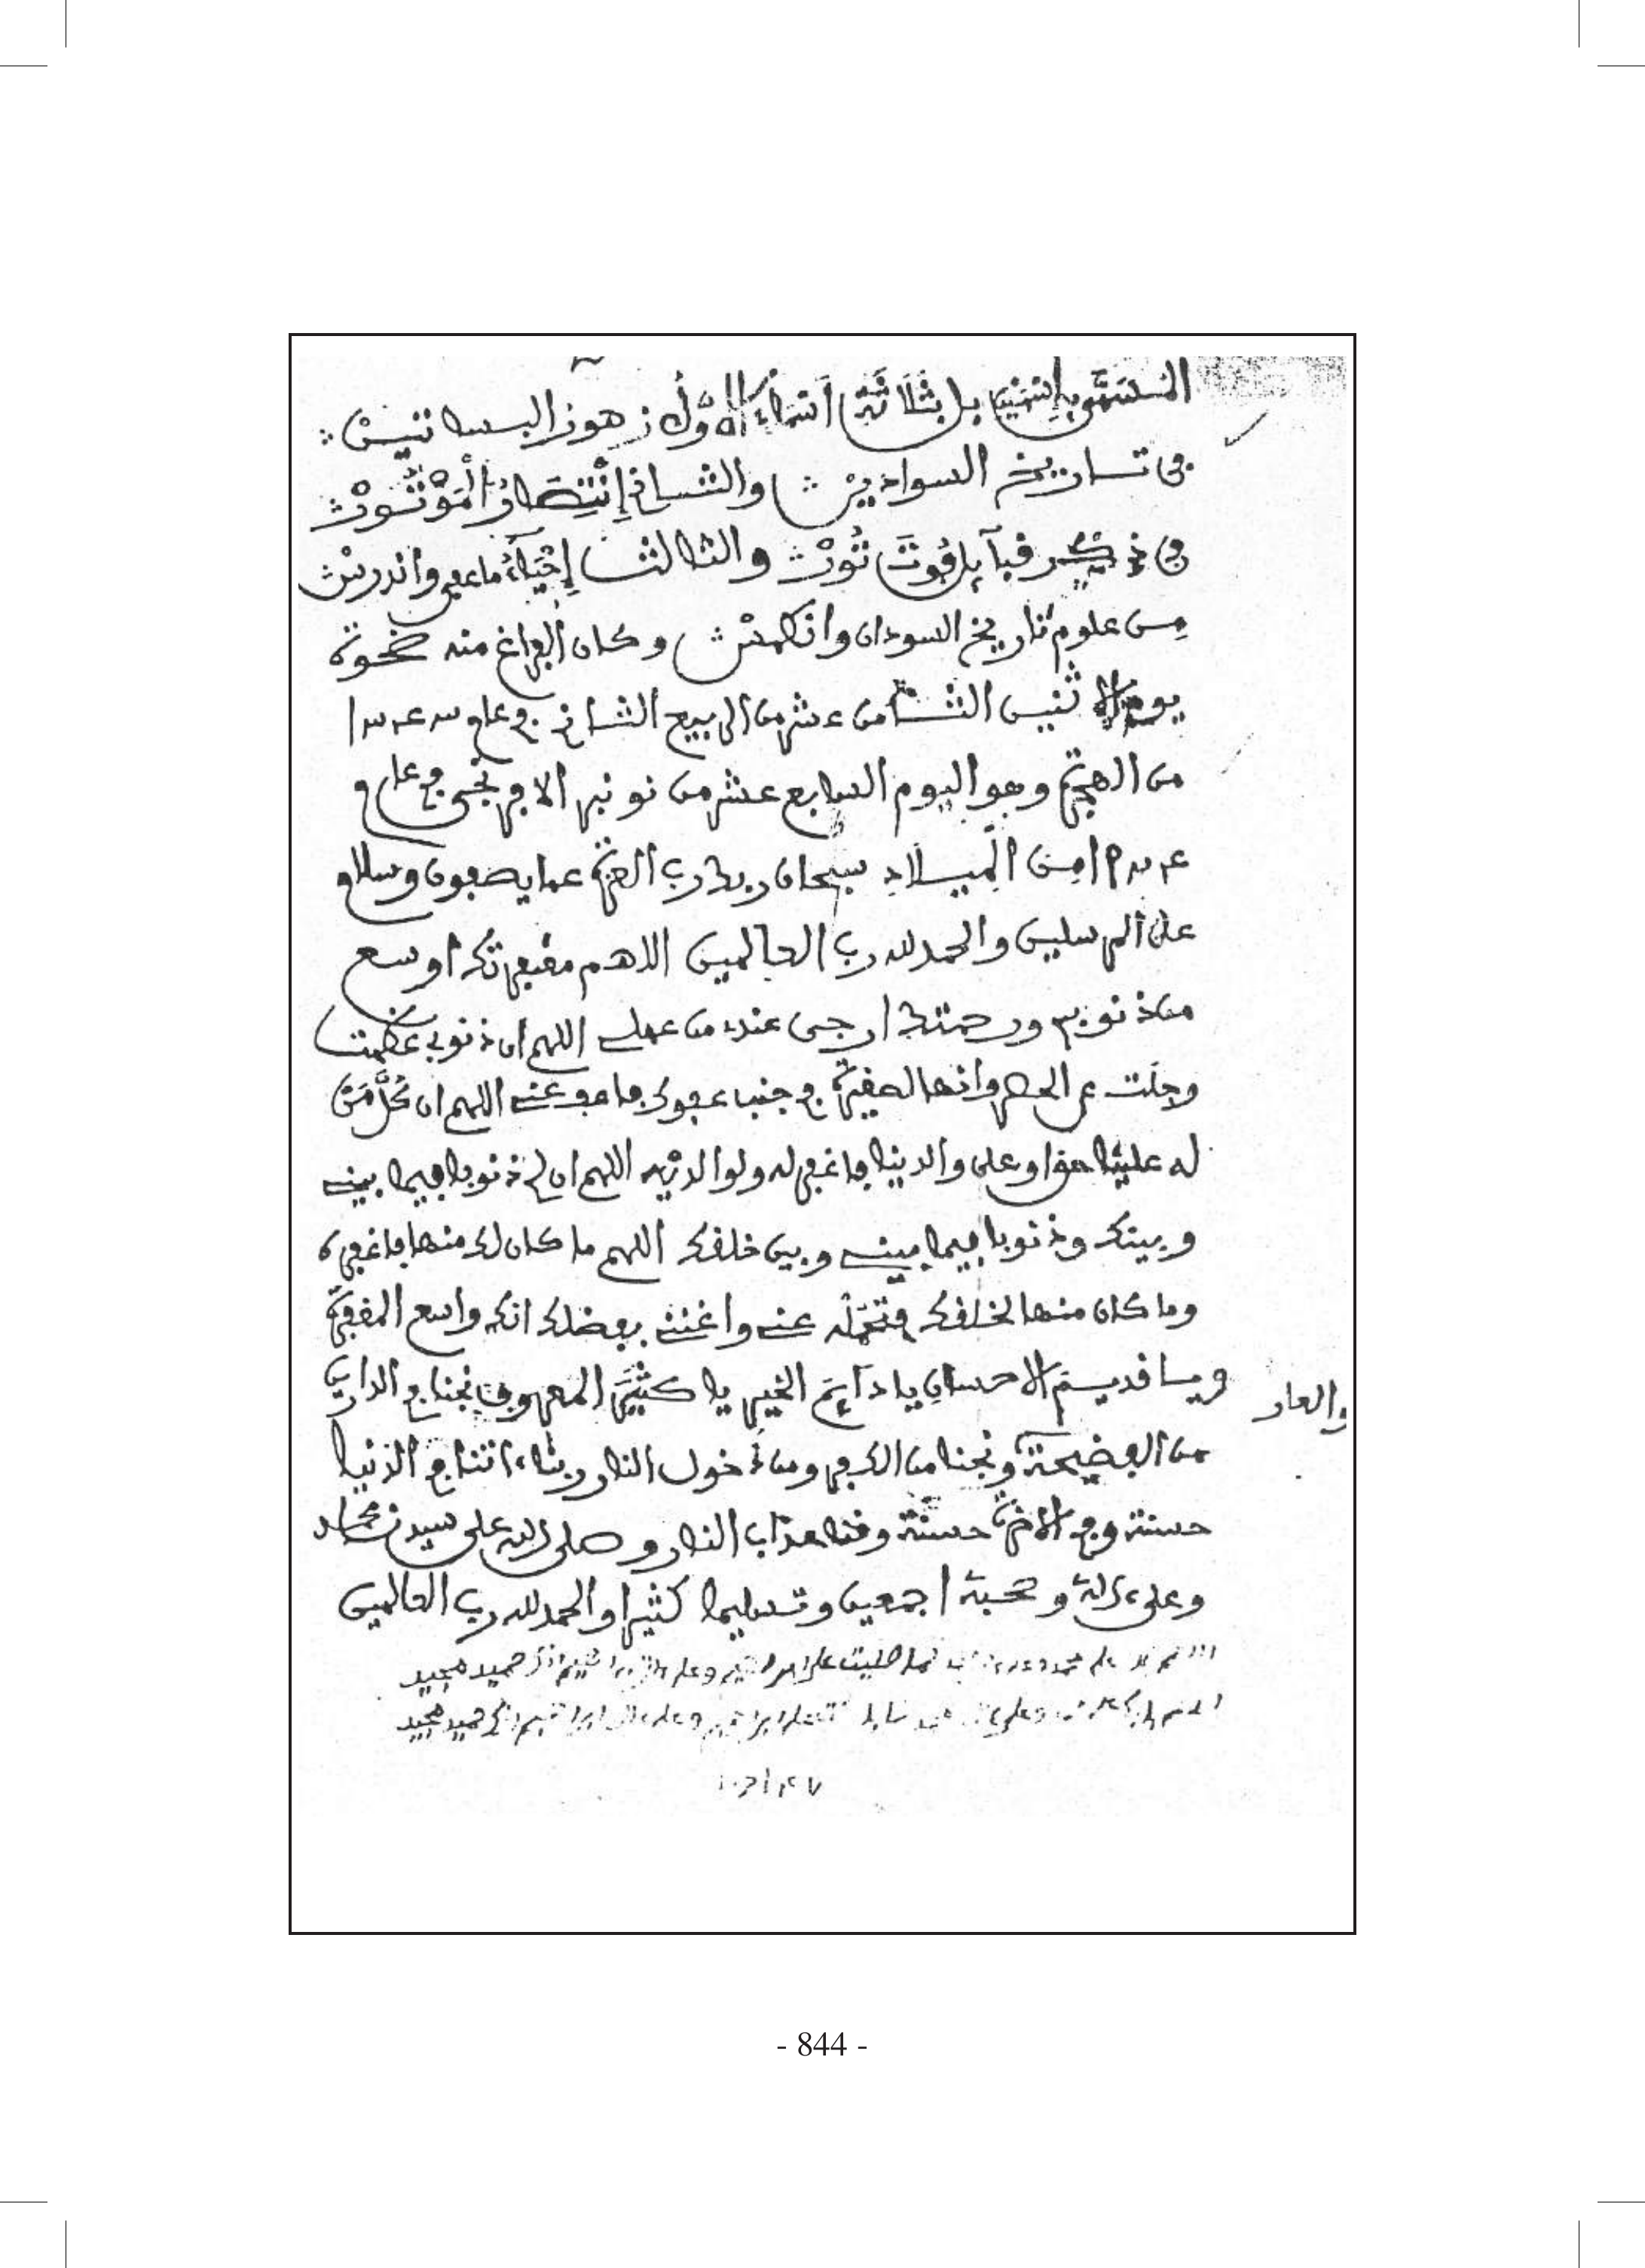 المسمى بإسمين بل بثلاثة أسماء الأول زهور البساتين
في تاريخ السوادين والثاني إنتصار الموتور
في ذكر قبآيل فوت تور والثالث إحياء ما عفى واندرس
من علوم تاريخ السودان وانطمس وكان الفراغ منه ضحوة
يوم الاثنين الثامن عشر من الربيع الثاني في عام
من الهجرة وهو اليوم السابع عشر من نونبر الافرنجي في عام
من الميلاد سبحان ربك رب العزة عما يصفون وسلام
على المرسلين والحمد لله رب العالمين اللاهم مغفرتك اوسع
من ذنوبي ورحمتك ارجى عندي من عملي اللهم ان ذنوبي عظمت
وجلت عن الحصر وانها لصغيرة في جنب عفوك فاعف عني اللهم ان كل من
له علينا حق او على والدينا فاغفر له ولوالديه اللهم ان لي ذنوبا فيما بيني
وبينك وذنوبا فيما بيني وبين خلقك اللهم ما كان لك منها فاغفره
وما كان منها لخلقك فتحمله عني واغنني بفضلك انك واسع المغفرة
ويا قديم الاحسان يا دآيم الخير يا كثير المعروف نجنا في الدارين
والعار
من الفضيحة ونجنا من الكفر ومن دخول النار ربنا ءاتنا في الدنيا
حسنة وفي الاخرة حسنة وقنا عذاب النار وصلى الله على سيدنا محمد
وعلى ءاله وصحبه اجمعين وتسليما كثيرا والحمد لله رب العالمين
كما صليت على ابراهيم وعلى ءال ابراهيم انك حميد مجيد
على ابراهيم وعلى ءال ابراهيم انك حميد مجيد
- 844 -